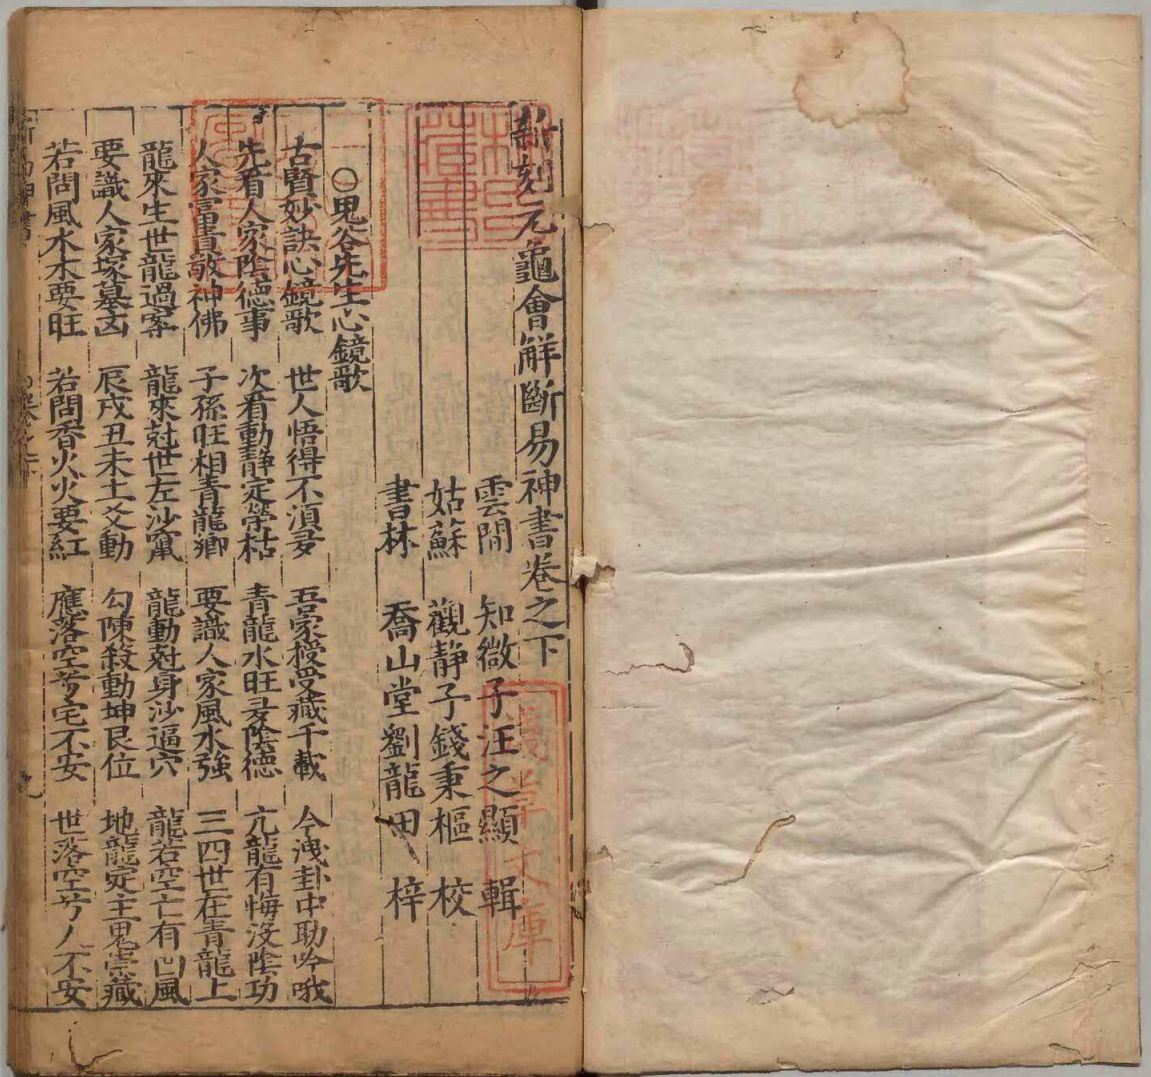 新刻元龜會解斷易神書卷之下
雲間 知微子汪之顯 輯
姑蘇 觀靜子錢秉樞 校
書林 喬山堂劉龍田 梓
○鬼谷先生心鏡歌
古賢妙訣心鏡歌 世人悟得不湏多 吾家授受藏千載 今洩卦中助吟哦
先看人家陰德事 次看動靜定榮枯 青龍水旺是陰德 亢龍有悔沒陰功
人家富貴敬神佛 子孫旺相青龍鄉 要識人家風水強 三四世在青龍上
龍來生世龍過案 龍來尅世左沙竄 龍動尅身沙逼穴 龍若空亡有凹風
要識人家塚墓凶 辰戌丑未土爻動 勾陳殺動坤艮位 地龍定主鬼祟藏
若問風水木要旺 若問香火火要紅 應落空兮宅不安 世落空兮人不安
藏書
文庫